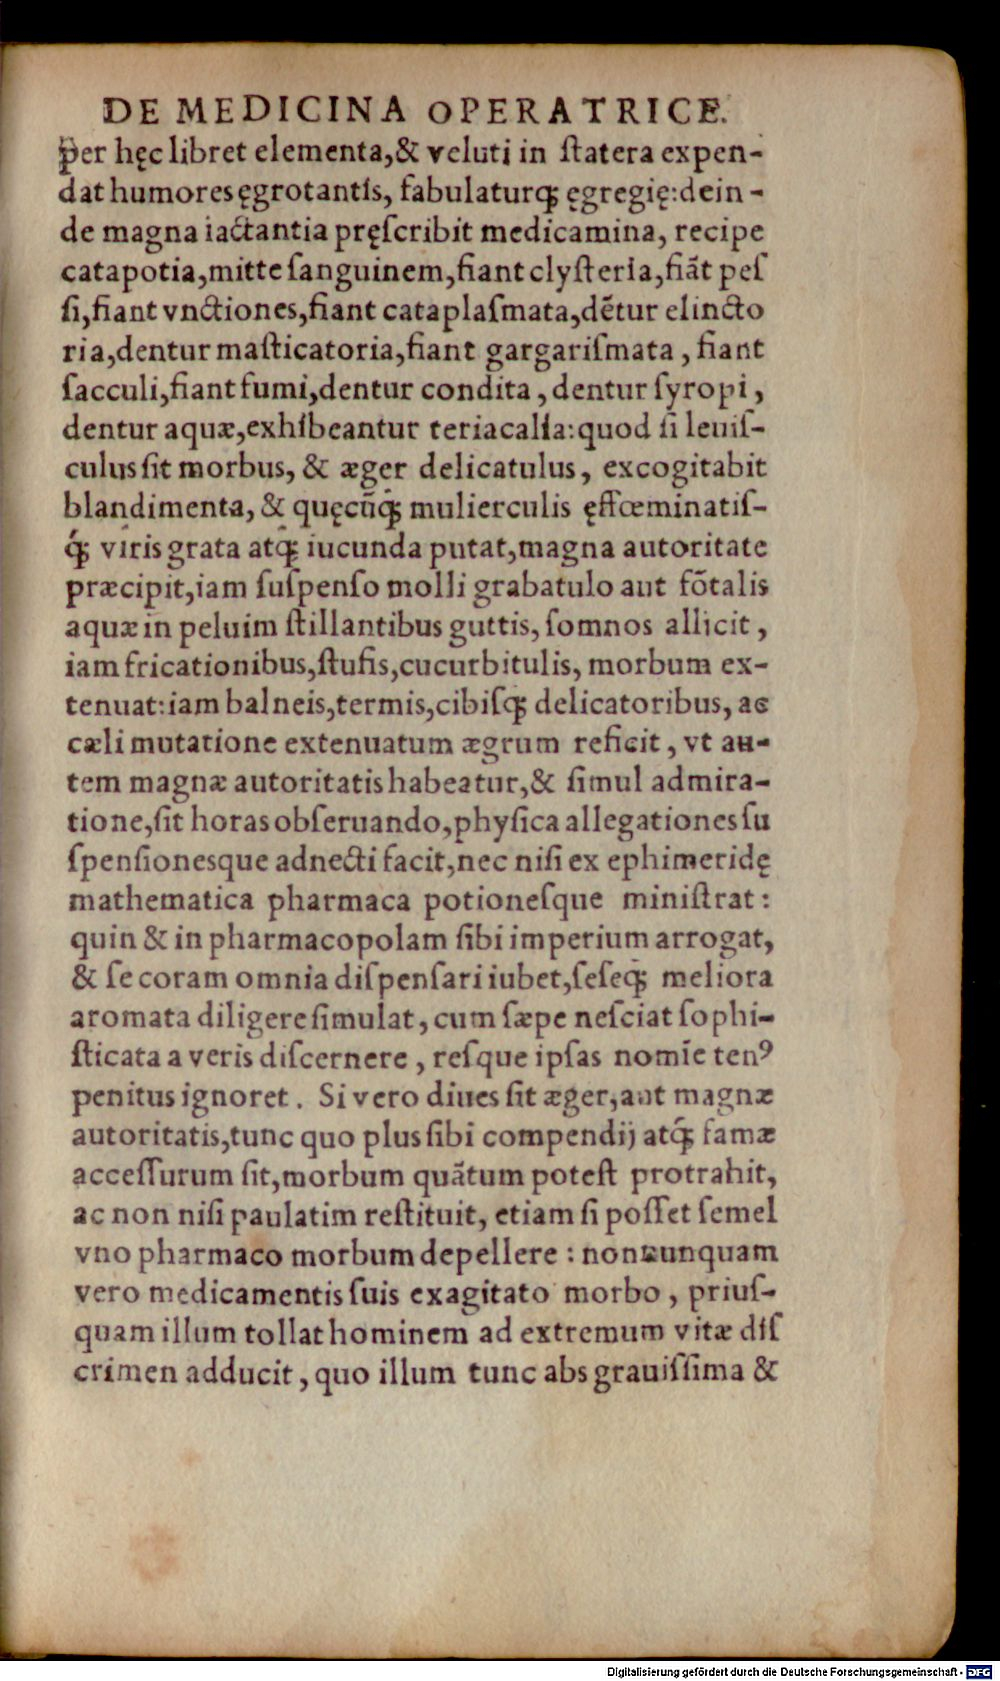 DE MEDICINA OPERATRICE.
per hęc libret elementa,& veluti in ſtatera expen-
dat humores ęgrotantis, fabulaturqꝫ ęgregię:dein-
de magna iactantia pręſcribit medicamina, recipe
catapotia,mitte ſanguinem,fiant clyſteria,fiãt peſ
ſi,fiant vnctiones,fiant cataplaſmata,dẽtur elincto
ria,dentur maſticatoria,fiant gargariſmata, fiant
ſacculi,fiant fumi,dentur condita, dentur ſyropi,
dentur aquæ,exhibeantur teriacalia:quod ſi leuiſ-
culus ſit morbus, & æger delicatulus, excogitabit
blandimenta, & quęcũqꝫ mulierculis ęffœminatiſ-
qꝫ viris grata atqꝫ iucunda putat,magna autoritate
præcipit,iam ſuſpenſo molli grabatulo aut fõtalis
aquæ in peluim ſtillantibus guttis, ſomnos allicit,
iam fricationibus,ſtufis,cucurbitulis, morbum ex-
tenuat:iam balneis,termis,cibiſqꝫ delicatoribus, ac
cæli mutatione extenuatum ægrum reficit, vt au-
tem magnæ autoritatis habeatur,& ſimul admira-
tione,ſit horas obſeruando,phyſica allegationes ſu
ſpenſionesque adnecti facit,nec niſi ex ephimeridę
mathematica pharmaca potioneſque miniſtrat:
quin & in pharmacopolam ſibi imperium arrogat,
& ſe coram omnia diſpenſari iubet,ſeſeqꝫ meliora
aromata diligere ſimulat, cum ſæpe neſciat ſophi-
ſticata a veris diſcernere, reſque ipſas nomĩe tenꝰ
penitus ignoret. Si vero diues ſit æger,aut magnæ
autoritatis,tunc quo plus ſibi compendij atqꝫ famæ
acceſſurum ſit,morbum quãtum poteſt protrahit,
ac non niſi paulatim reſtituit, etiam ſi poſſet ſemel
vno pharmaco morbum depellere: nonnunquam
vero medicamentis ſuis exagitato morbo, priuſ-
quam illum tollat hominem ad extremum vitæ diſ
crimen adducit, quo illum tunc abs grauiſſima &
Digitalisierung gefördert durch die Deutsche Forschungsgemeinschaft - DFG